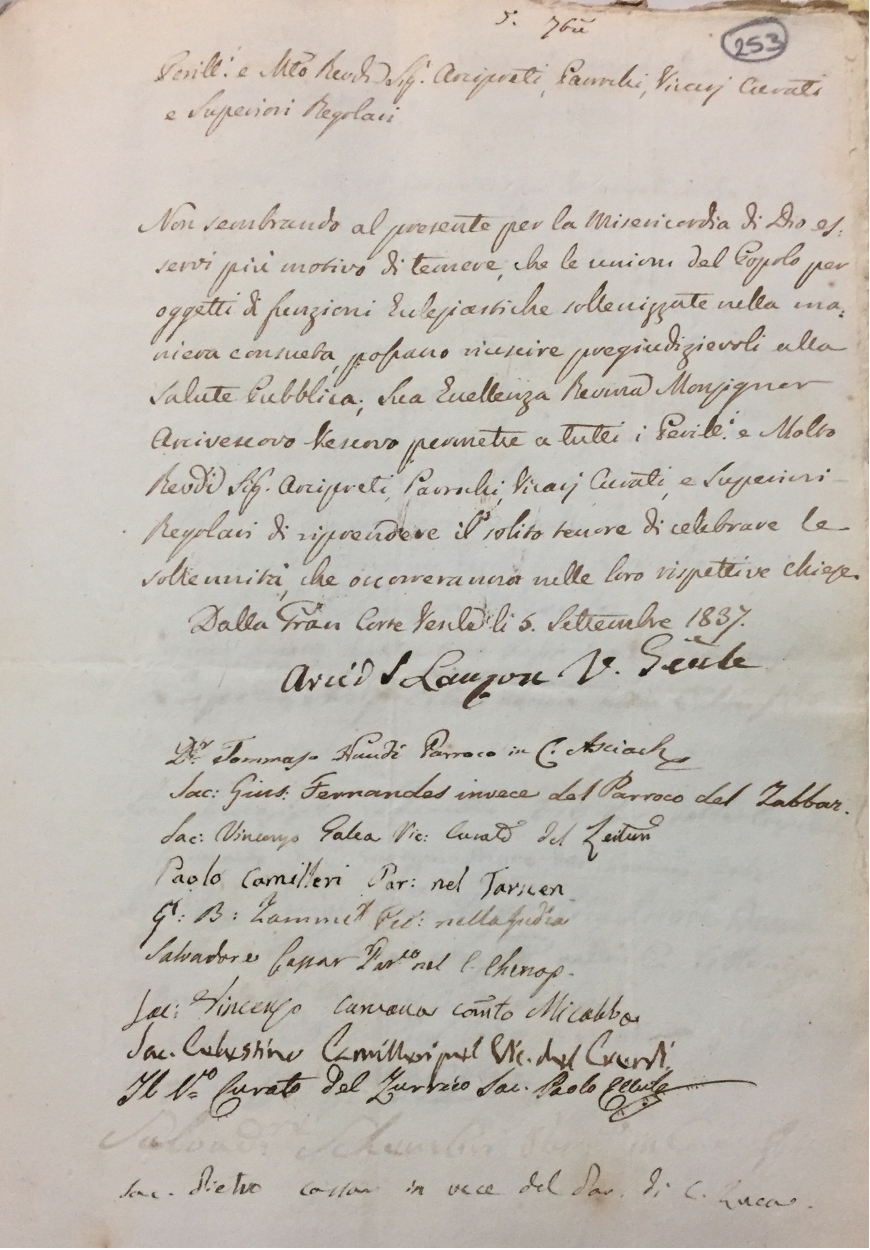 5. 7bre
253
Perill.i e Mto Revdi Sig.i Arcipreti, Parochi, Vicarj Curati
e Superiori Regolari
Non sembrando al presente per la Misericordia di Dio es:
servi più motivo di temere, che le unioni del Popolo per
oggetti di funzioni Eclesiastiche sollennizzate nella ma:
niera consueta, possano riuscire pregiudizievoli alla
Salute Pubblica; Sua Eccellenza Revma Monsignor
Arcivescovo Vescovo permette a tutti i Perill.i e Molto
Revdi Sig.i Arcipreti, Parochi, Vicarj Curati, e Superiori
Regolari di riprendere il solito tenore di celebrare le
sollennità, che occorreranno nelle loro rispettive chiese.
Dalla Gran Corte Vesle li 5. Settembre 1837.
Arcid S Lanzon V. Genle
Dr. Tommaso Naudi Parroco in C. Asciach
Sac: Gius: Fernandes invece del Parroco del Zabbar.
Sac: Vincenzo Galea Vic: Curato del Zeitun
Paolo Camilleri Par: nel Tarxien
G: B: Zammit nella Gudia
Salvadore Cassar Parco nel C. Chercop.
Sac: Vincenzo Caruana Micabba
Sac. Celestino Camilleri pel Vic. del Crendi
Il Vo Curato del Zurrico Sac. Paolo
Sac. Pietro Cassar in vece del Par. di C. Luca.